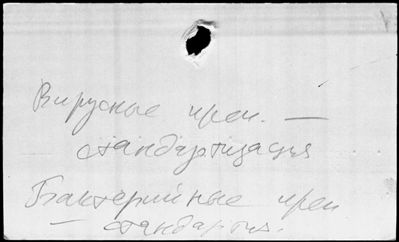 Вирусные преп. —
стандартизация
Бактерийные преп
— стандартиз.